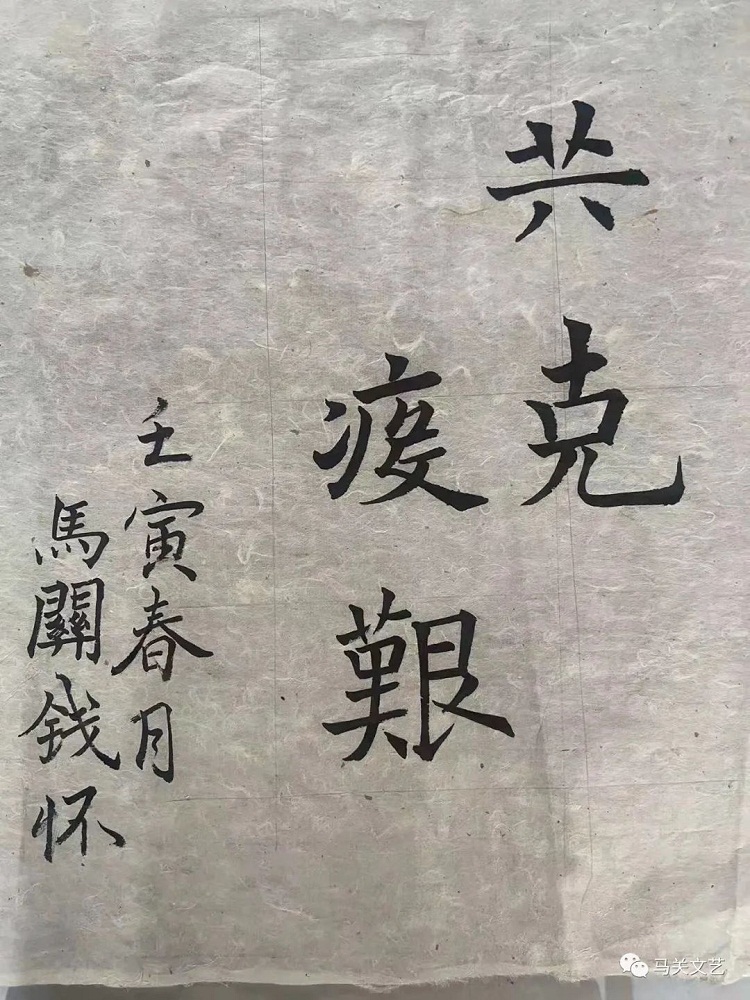 共克
疫艱
壬寅春月
馬關錢怀
马关文艺